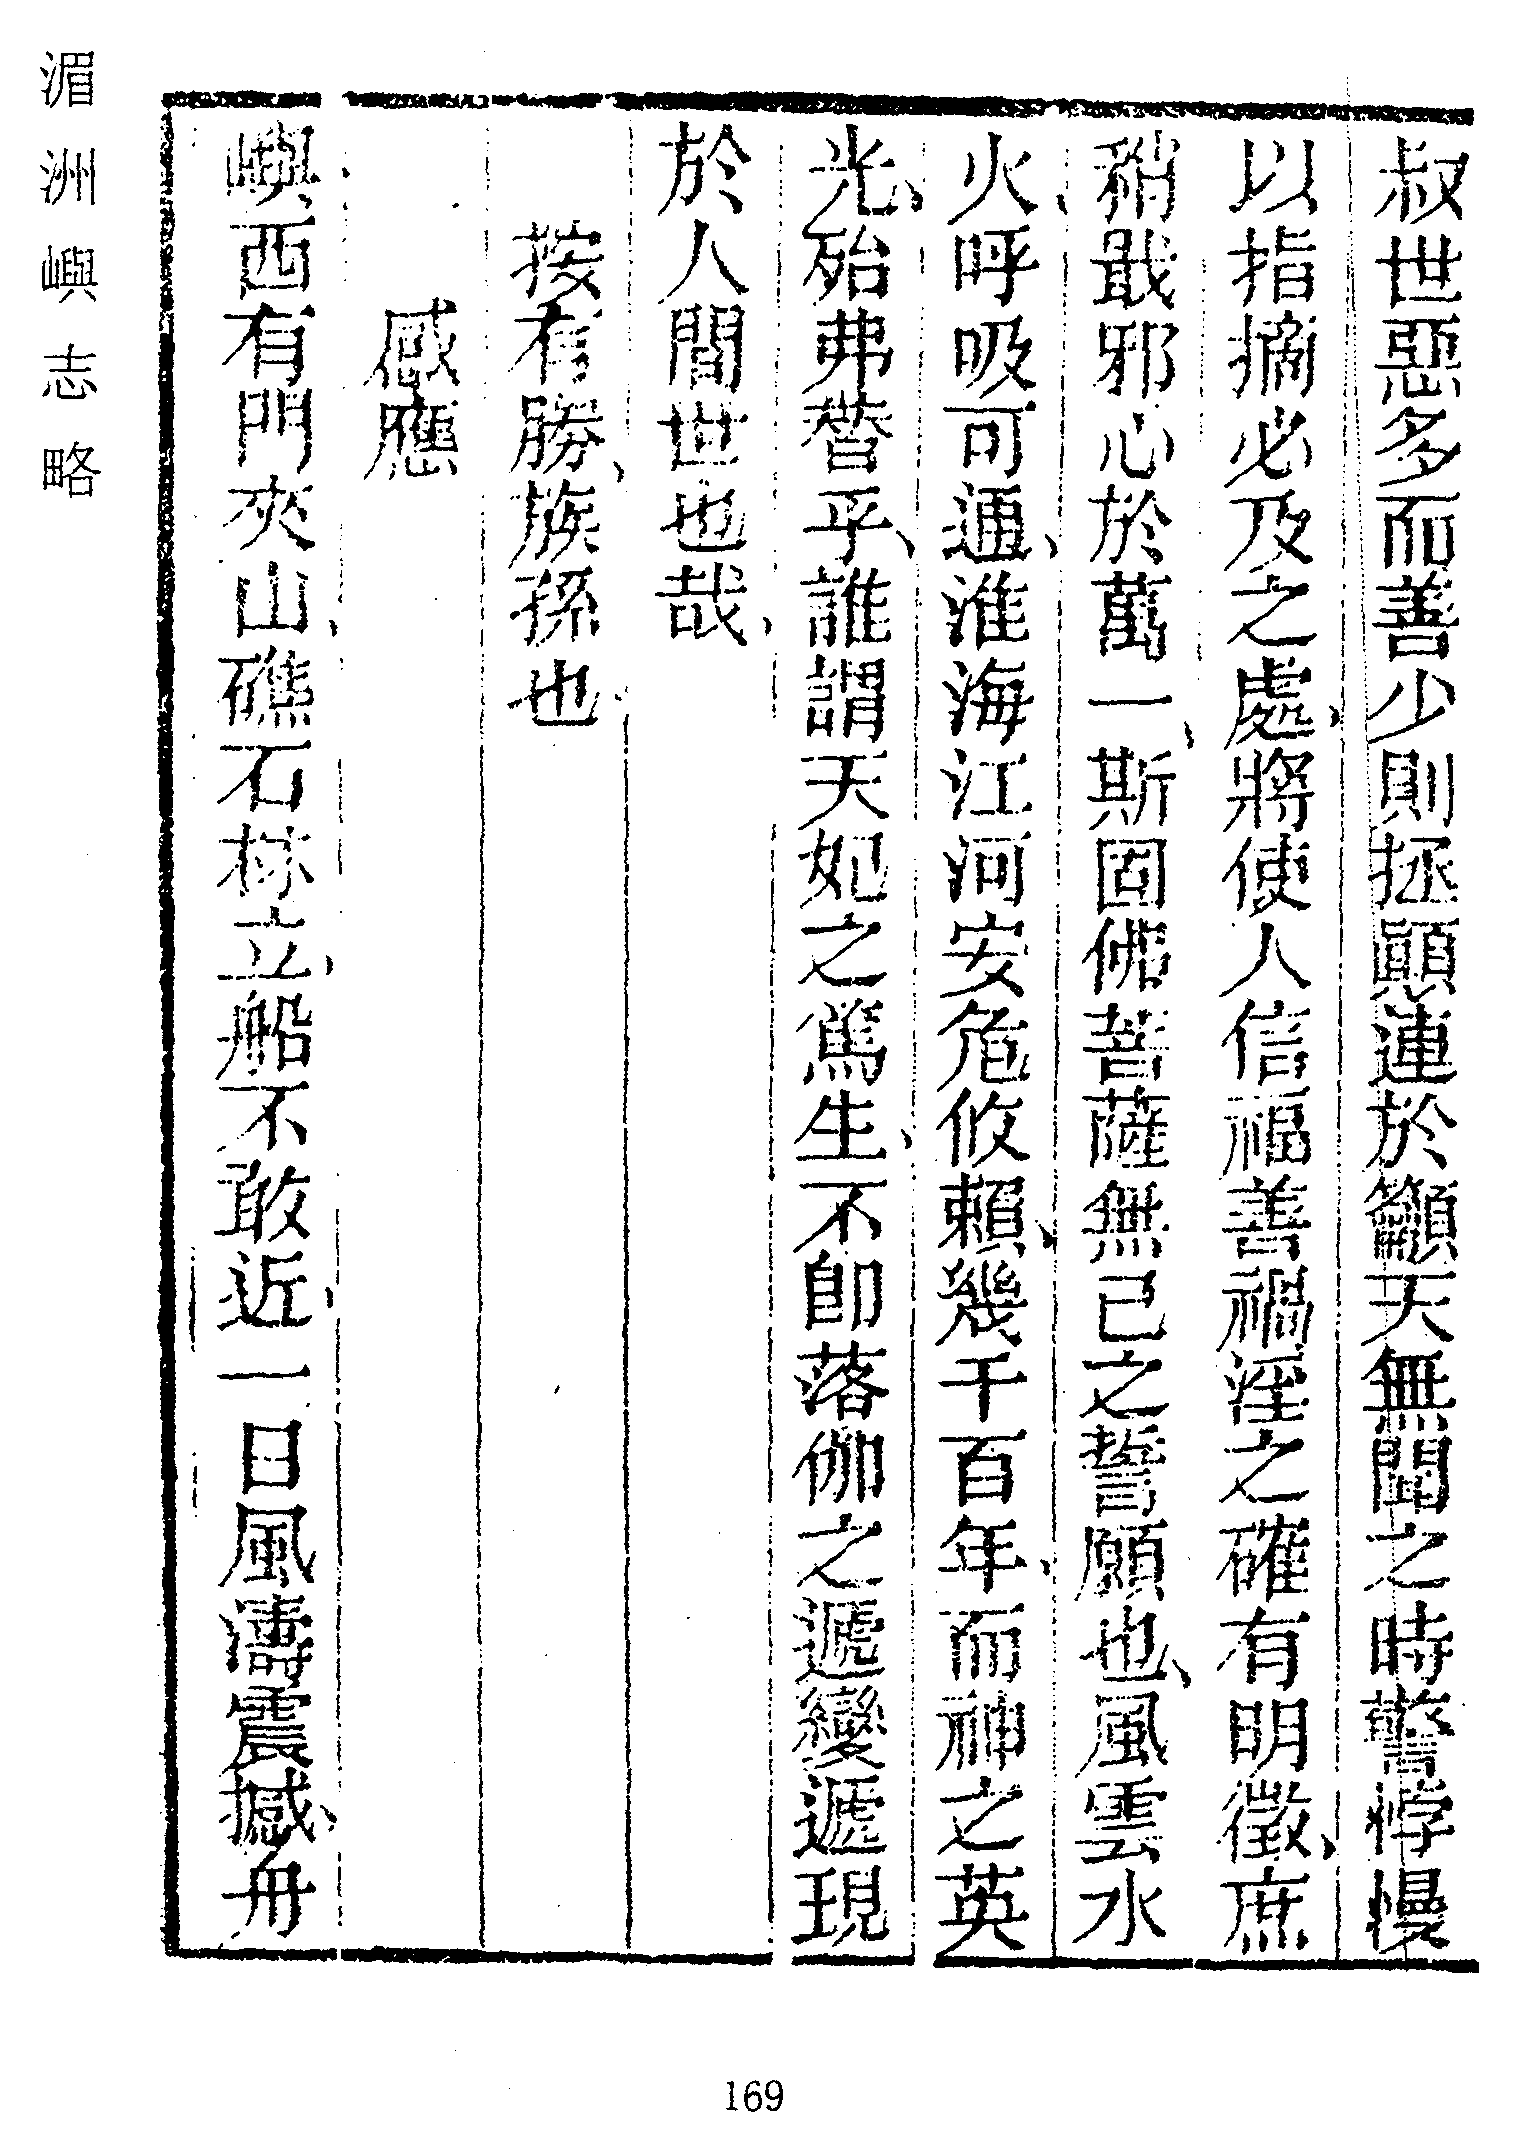 叔世惡多而善少則拯顚連於籲天無聞之時警悖慢
以指摘必及之處將使人信福善禍淫之確有明徵庶
稍戢邪心於萬一斯固佛菩薩無已之誓願也風雲水
火呼吸可通淮海江河安危攸賴幾千百年而神之英
光殆弗替乎誰謂天妃之篤生不卽落伽之遞變遞現
於人間世也哉
按有勝族孫也
感應
嶼西有門夾山礁石林立船不敢近一日風濤震撼舟
湄洲嶼志略
169